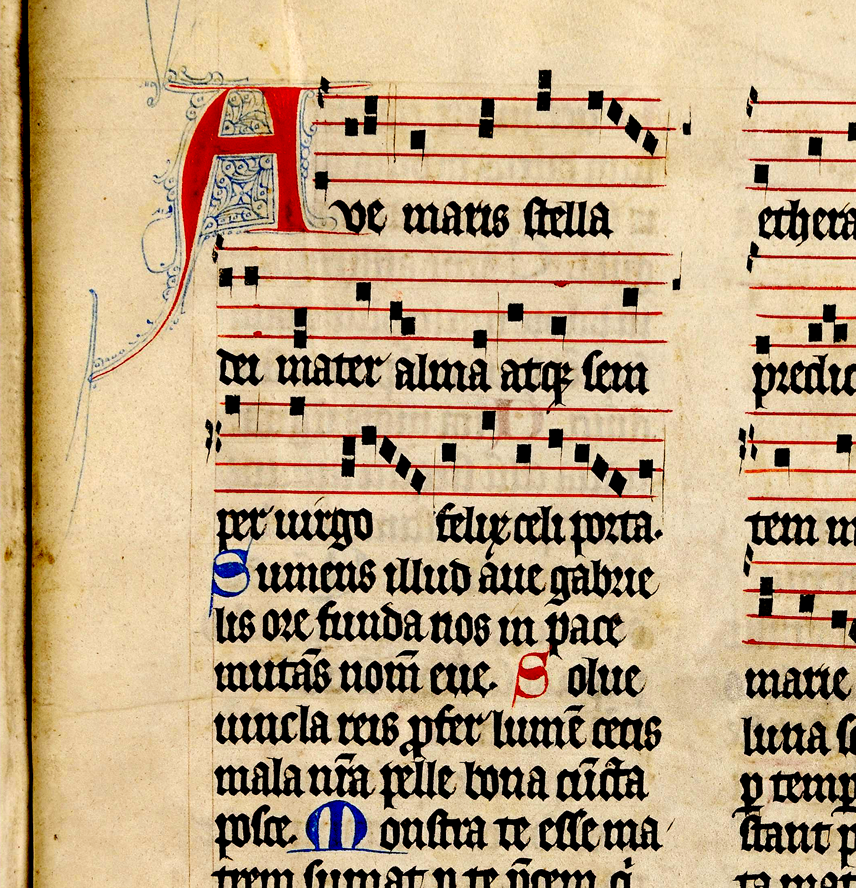 Ave maris stella
dei mater alma atqꝫ sem
per uirgo felix celi porta.
Sumens illud aue gabrie
lis ore funda nos in pace
mutãs nom̃ eue. Solue
uincla reis ꝓfer lumẽ cecis
mala nr̃a pelle bona cũcta
posce. Monstra te esse ma
trem sumat p te p̃cem q̇
ethera
predic
tem
marie
luna
ꝑ temp
stant